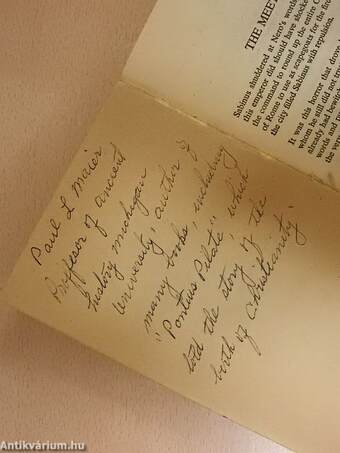 THE MEET
Sabinus shuddered at Nero's words
this emperor did should have shocke
the command to round up the entire C
of Rome to use as scapegoats for the fire
the city filled Sabinus with repulsion.
It was this horror that drove
whom he still did not tru
already had bewitch
words and
the very
Paul L Maier
Proffesor of ancient
history michigan
University author of
many books including
"Pontius Pilate" which
told the story of the
birth of Christianity
Antikvárium.hu